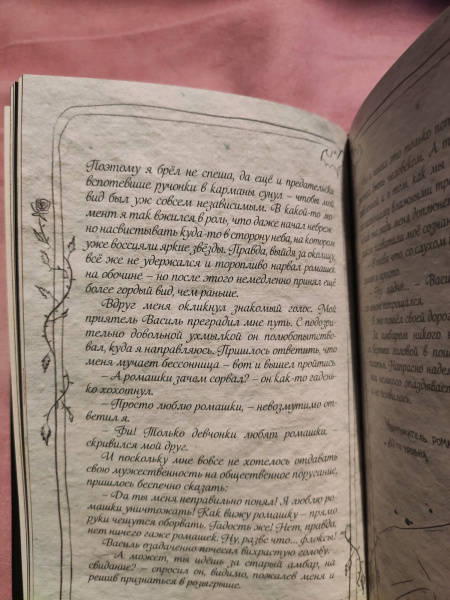 Поэтому я брёл не спеша, да ещё и предательски
вспотевшие ручонки в карманы сунул – чтобы мой
вид был уже совсем независимым. В какой-то мо-
мент я так вжился в роль, что даже начал небреж-
но насвистывать куда-то в сторону неба, на котором
уже воссияли яркие звёзды. Правда, выйдя за околицу,
всё же не удержался и торопливо нарвал ромашек
на обочине – но после этого немедленно принял ещё
более гордый вид, чем раньше.
Вдруг меня окликнул знакомый голос. Мой
приятель Василь преградил мне путь. С подозри-
тельно довольной ухмылкой он полюбопытство-
вал, куда я направляюсь. Пришлось ответить, что
меня мучает бессонница – вот и вышел пройтись.
– А ромашки зачем сорвал? – он как-то гадень-
ко хохотнул.
– Просто люблю ромашки, – невозмутимо от-
ветил я.
– Фи! Только девчонки любят ромашки, –
скривился мой друг.
И поскольку мне вовсе не хотелось отдавать
свою мужественность на общественное поругание,
пришлось беспечно сказать:
– Да ты меня неправильно понял! Я люблю ро-
машки уничтожать! Как вижу ромашку – прямо
руки чешутся оборвать. Гадость же! Нет, правда,
нет ничего гаже ромашек. Ну, разве что... флоксы!
Василь озадаченно почесал вихрастую голову.
– А может, ты идёшь за старый амбар, на
свидание? – спросил он, видимо, пожалев меня и
решив признаться в розыгрыше.
это только
А т
и о том, как мы
со слухом
– Васи
своей доро
За амбаром никого н
головой в
Напрасно наде